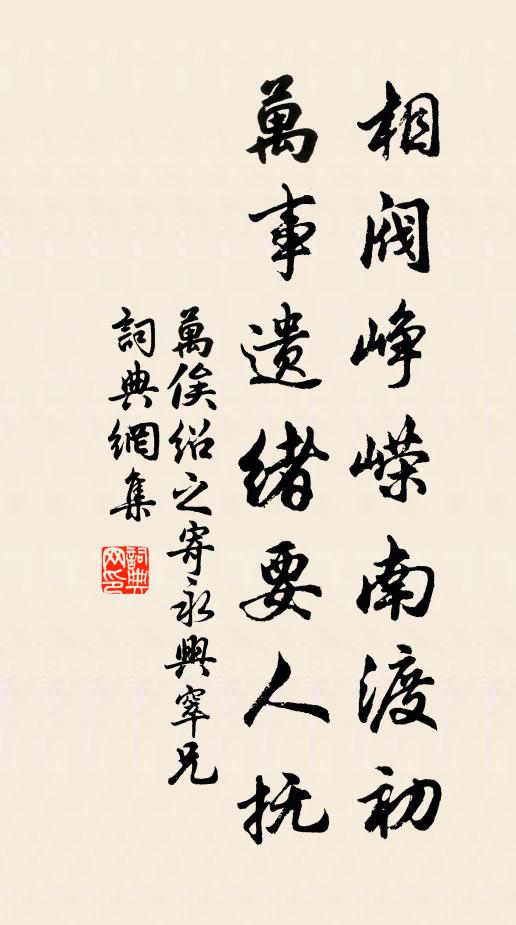 相阀峥嵘南渡初
萬事遗绪要人抚
萬俟绍之寄永興宰兄
詞典網集
詞典网印